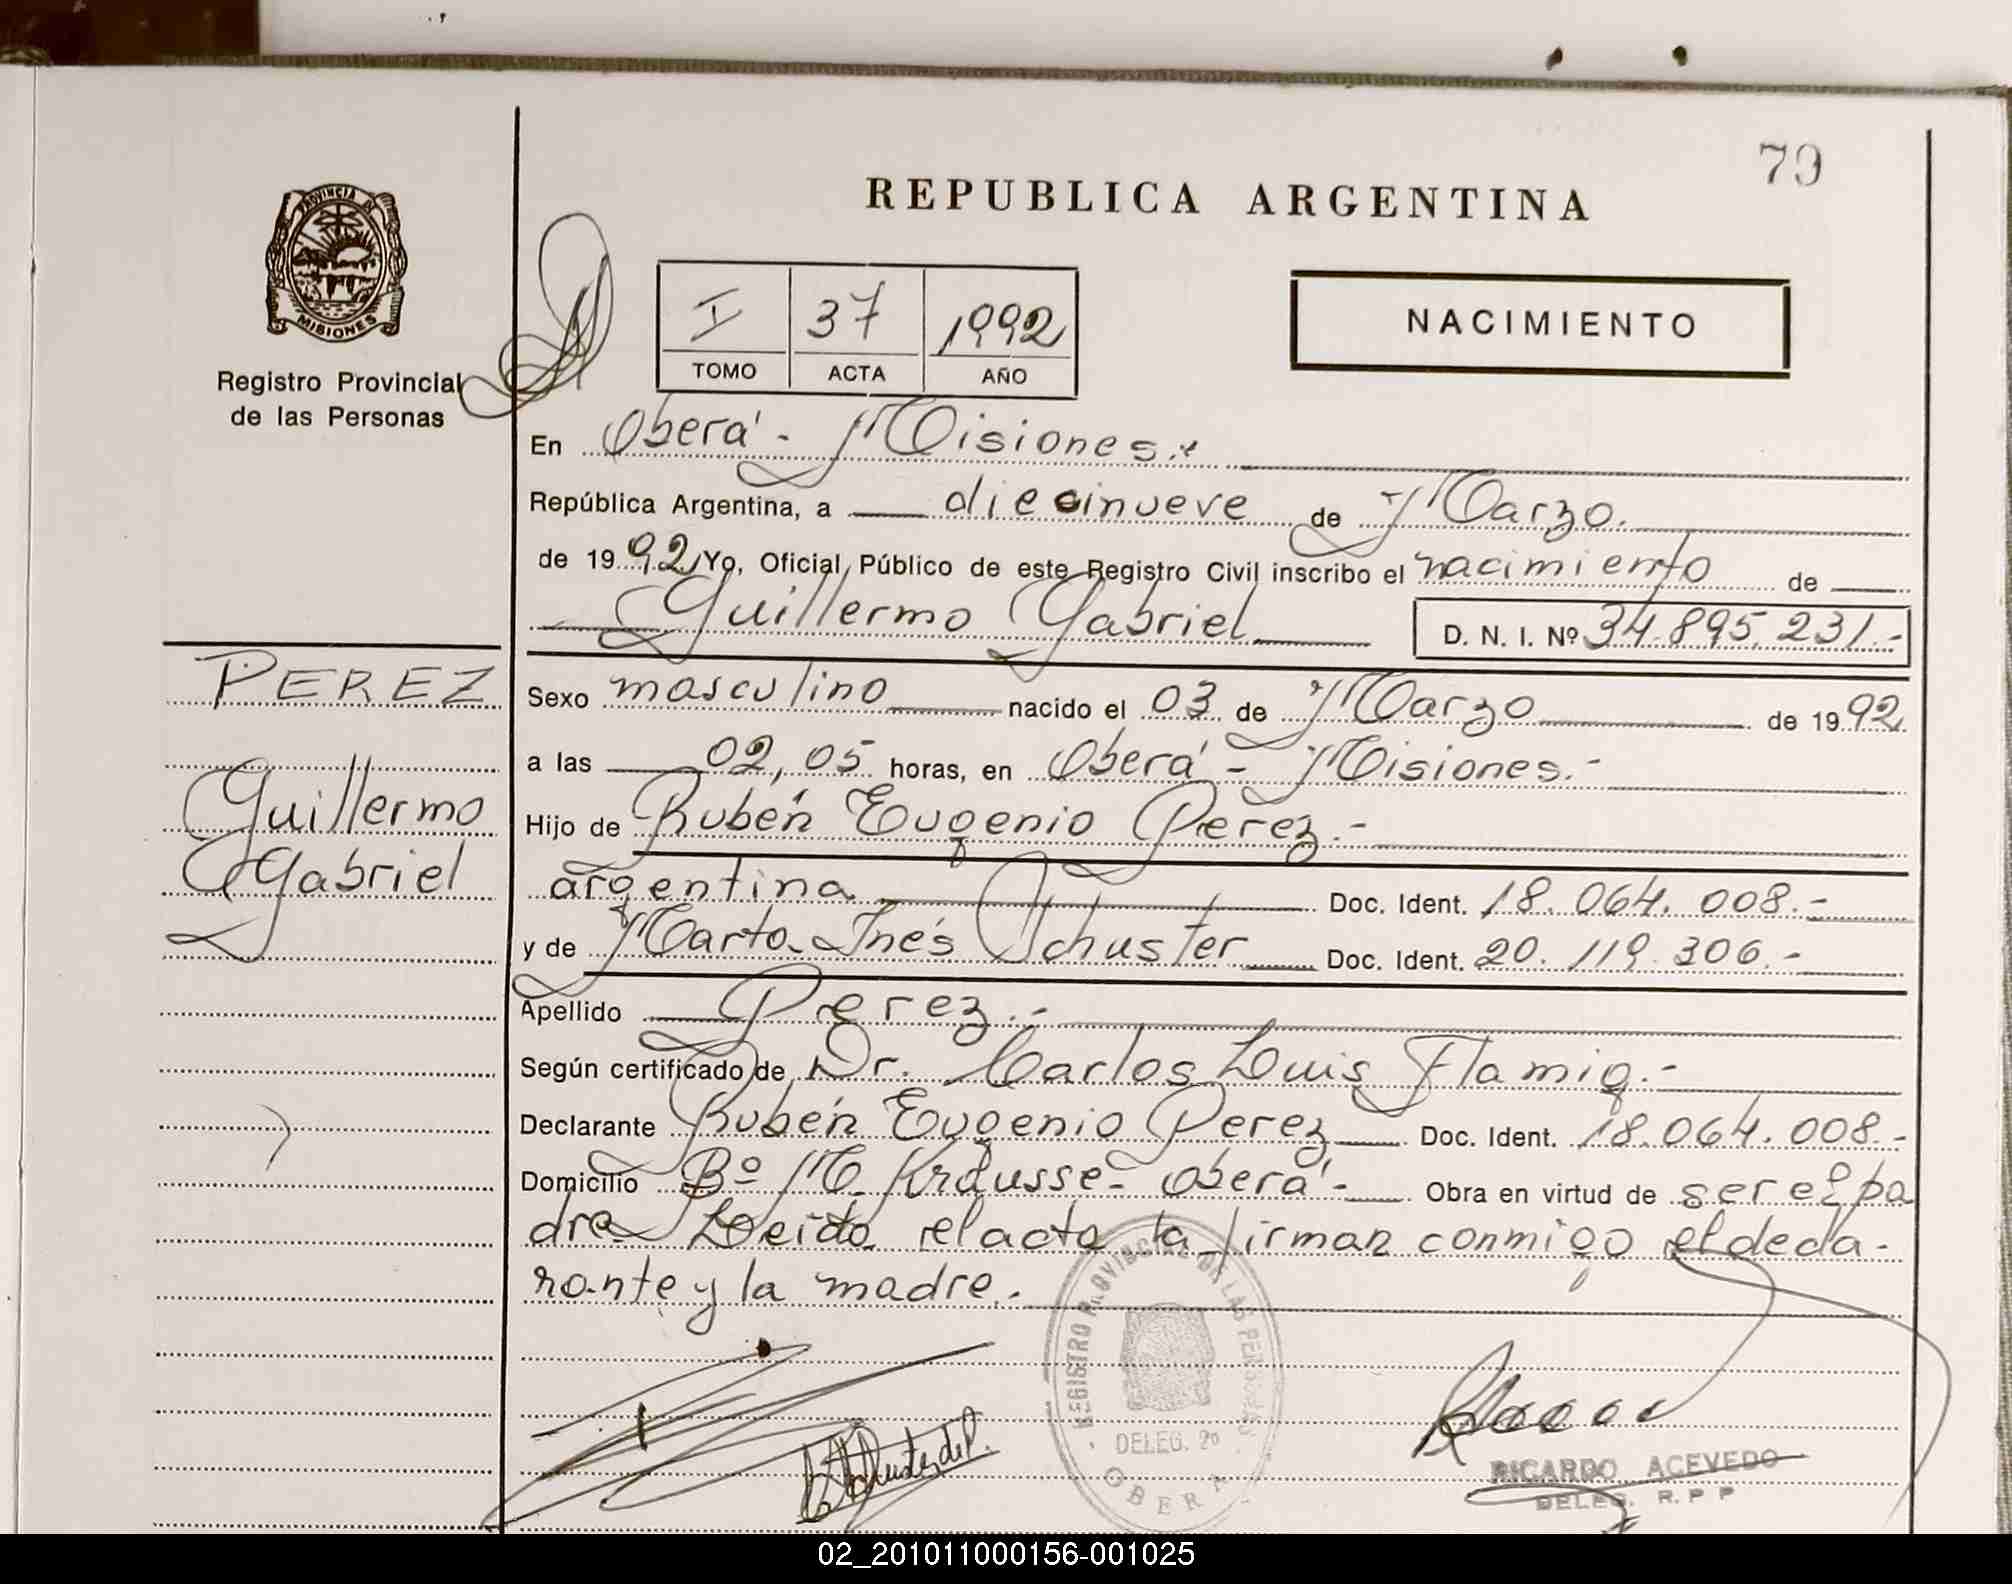 79
REPUBLICA ARGENTINA
PROVINCIA DE
MISIONES
Registro Provincial
de las Personas
I 37 1992
TOMO ACTA AÑO
NACIMIENTO
En Oberá - Misiones.-
República Argentina, a diecinueve de Marzo.
de 1992 Yo, Oficial Público de este Registro Civil inscribo el nacimiento de
Guillermo Gabriel D. N. I. Nº 34.895.231.-
PEREZ
Guillermo
Gabriel
Sexo masculino nacido el 03 de Marzo de 1992
a las 02,05 horas, en Oberá - Misiones.-
Hijo de Rubén Eugenio Perez.-
argentina Doc. Ident. 18.064.008.-
y de Marta Inés Schuster Doc. Ident. 20.119.306.-
Apellido Perez.-
Según certificado de Dr. Carlos Luis Flamig.-
Declarante Rubén Eugenio Perez Doc. Ident. 18.064.008.-
Domicilio Bº M. Krausse - Oberá - Obra en virtud de ser el pa
dre Leida el acta la firman conmigo el decla-
rante y la madre.-
REGISTRO PROVINCIAL DE LAS PERSONAS
DELEG. 2º
OBERA
RICARDO ACEVEDO
DELEG. R.P.P
02_201011000156-001025